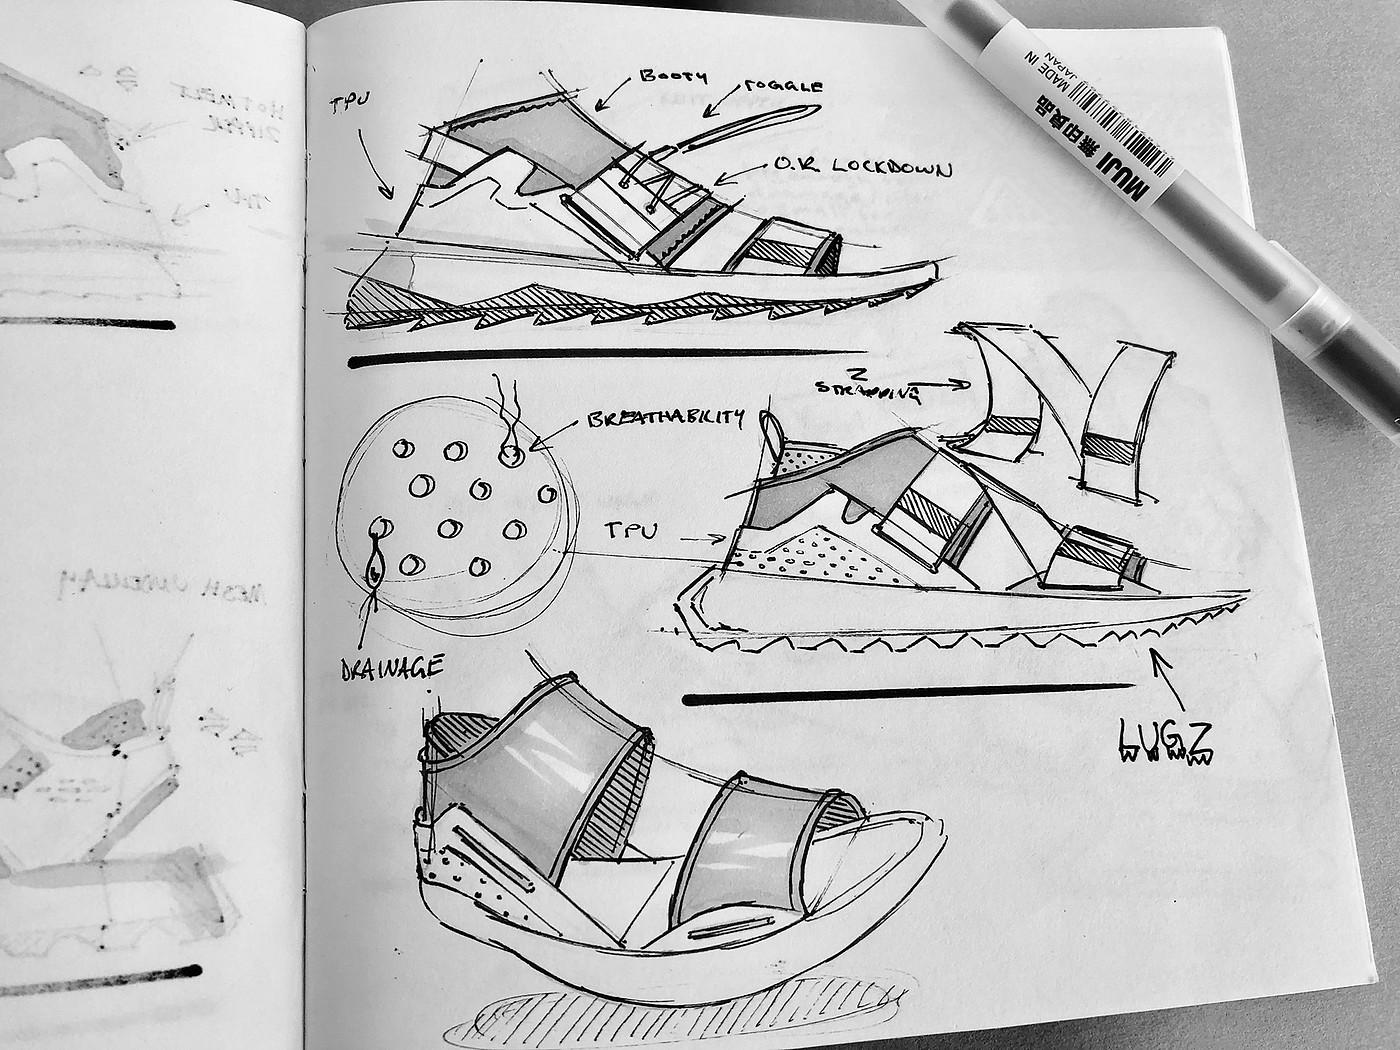 TPU
BOOTY
TOGGLE
O.R. LOCKDOWN
MADE IN
JAPAN
MUJI 無印良品
Z
STRAPPING
BREATHABILITY
TPU
DRAINAGE
LUGZ
HOTMELT
TPU
MESH UNDERLAY